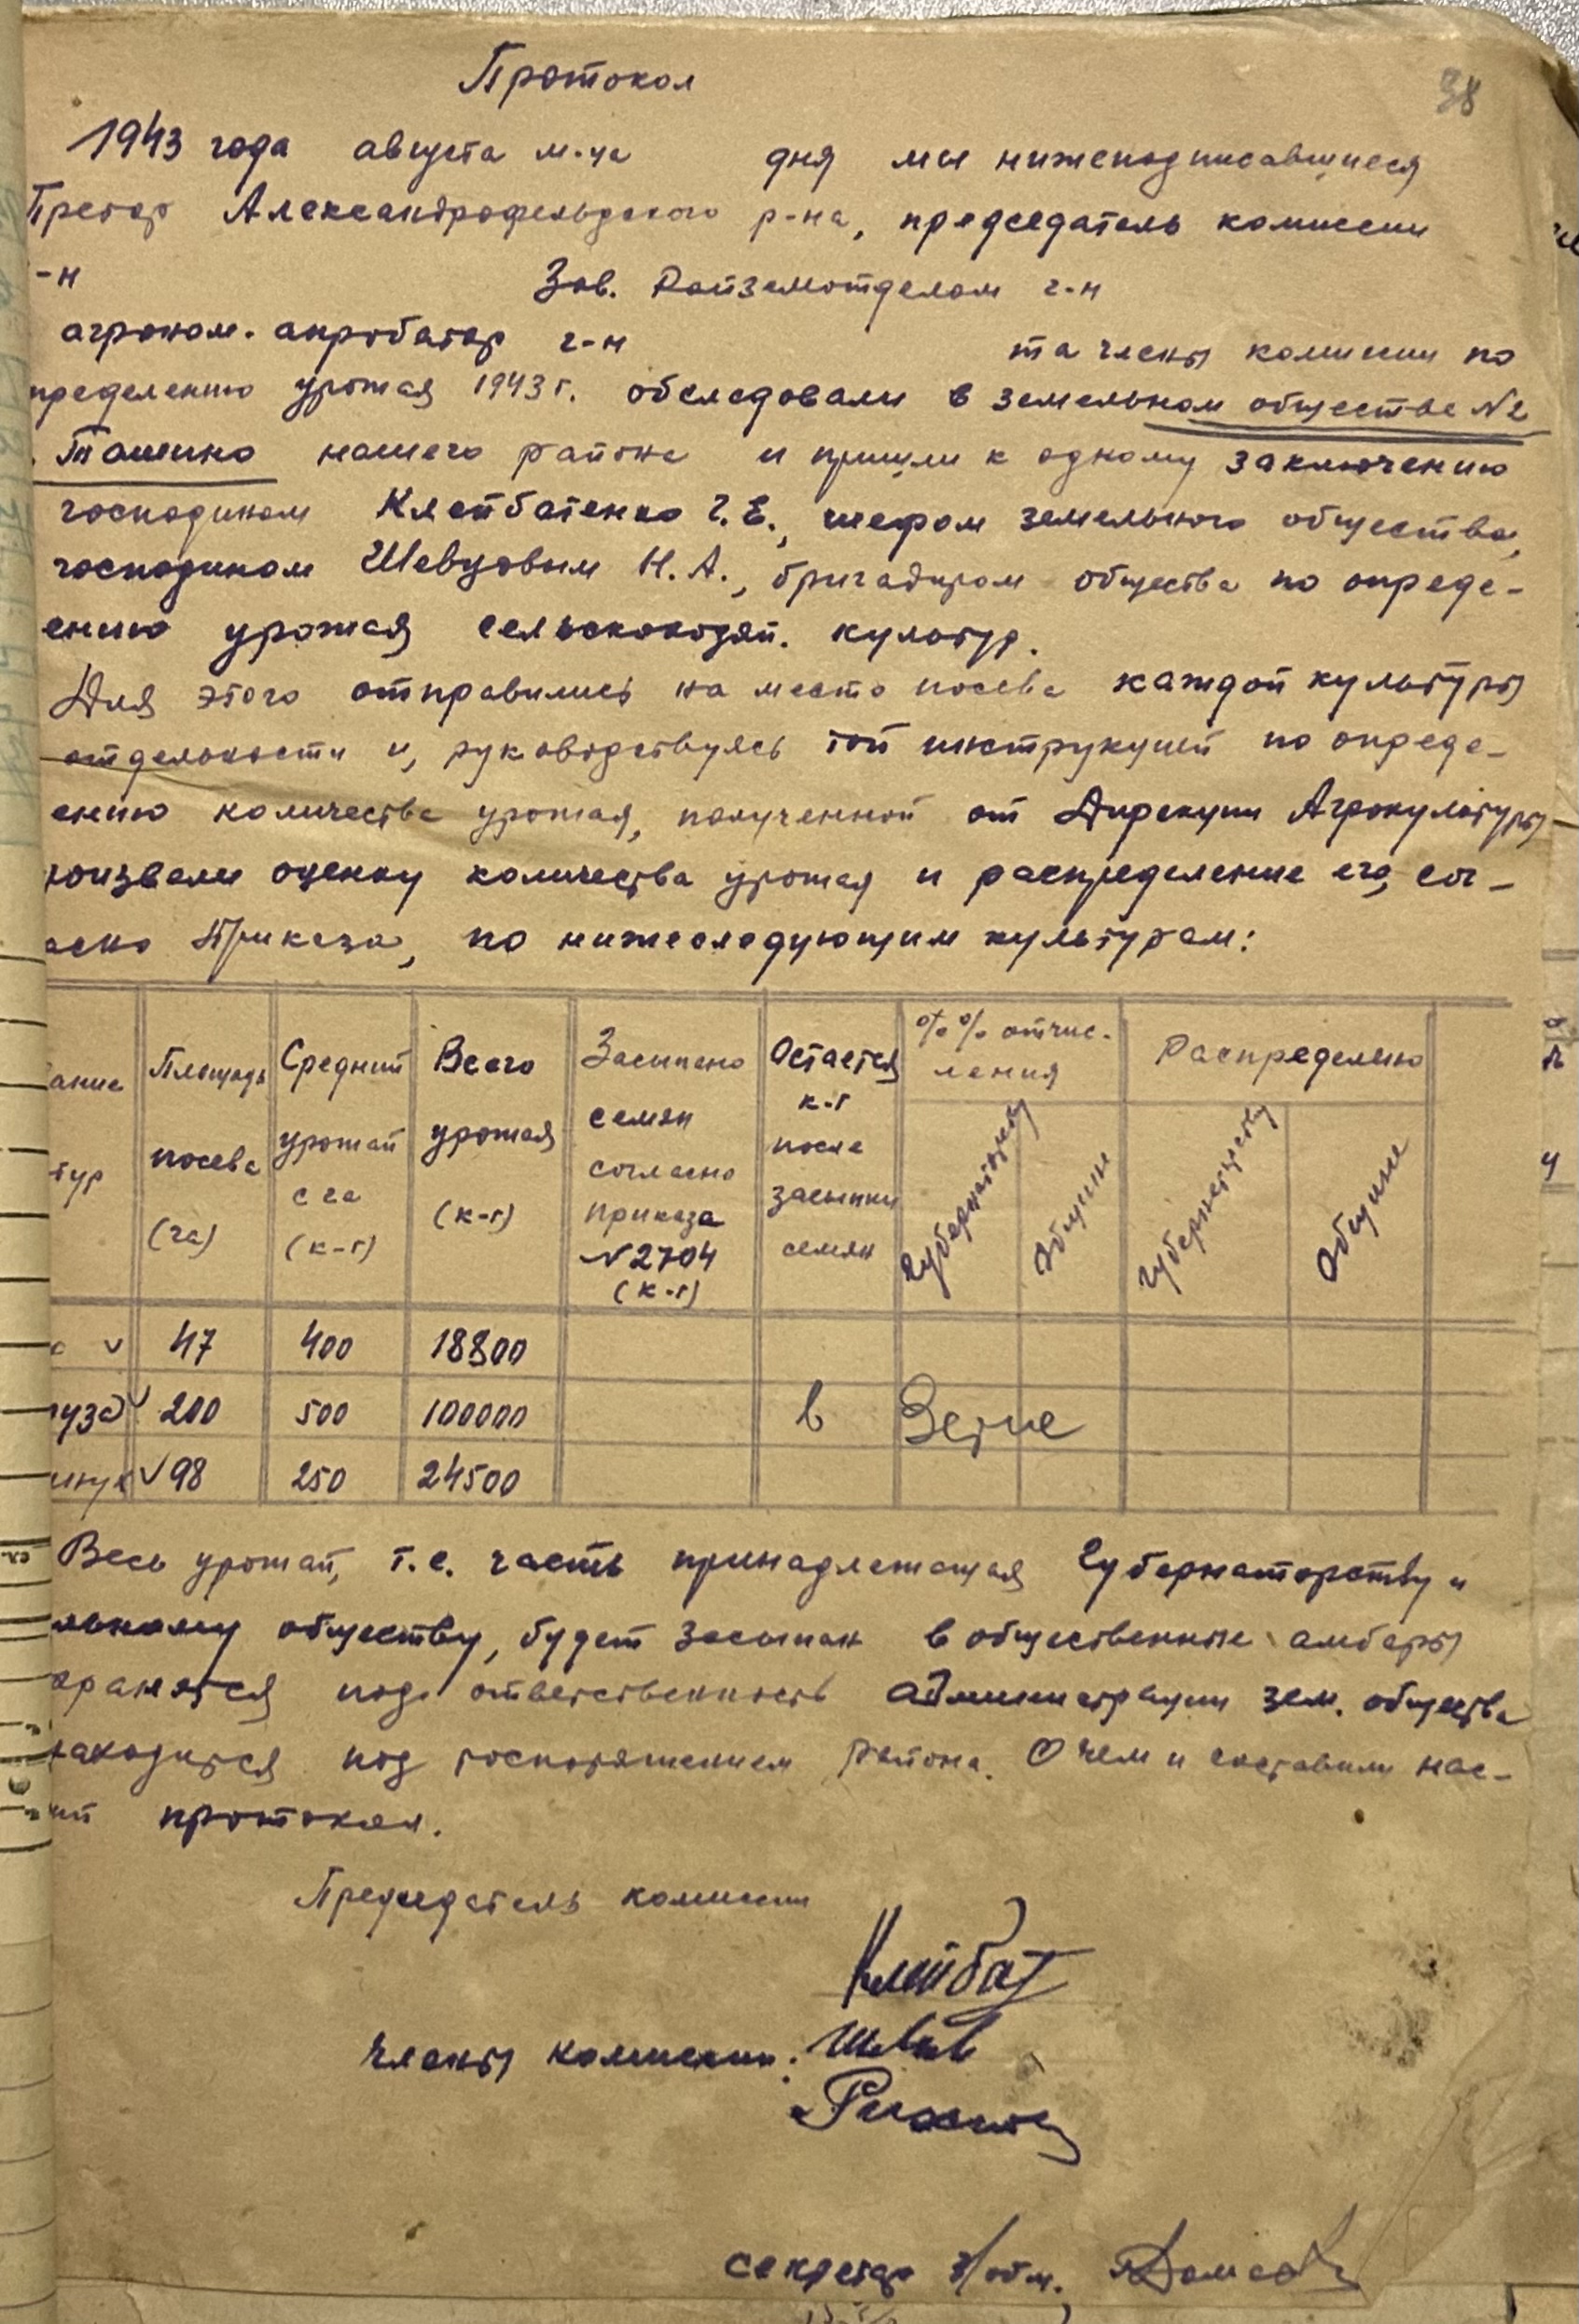 38
Протокол
1943 года августа м-ца дня мы нижеподписавшиеся
Претор Александрофельдского р-на, председатель комиссии
-н Зав. Райземотделом г-н
агроном-апробатор г-н та члены комиссии по
пределению урожая 1943 г. обследовали в земельном обществе №2
Ташино нашего района и пришли к одному заключению
господином Клейбатенко Г. Е., шефом земельного общества,
господином Шевцовым Н. А., бригадиром общества по опреде-
ению урожая сельскохозяй. культур.
Для этого отправились на место посева каждой культуры
отдельности и, руководствуясь той инструкцией по опреде-
ению количества урожая, полученной от Дирекции Агрокультуры
роизвели оценку количества урожая и распределение его, сог-
асно Приказа, по нижеследующим культурам:
ание тур
Площадь посева (га)
Средний урожай с га (к-г)
Всего урожая (к-г)
Засыпано семян согласно приказа №2704 (к-г)
Остается к-г после засыпки семян
%% отчис-
ления
Губернаторству
Общине
Распределено
Губернаторству
Общине
о v 47 400 18800
руза v 200 500 100000 в Зерне
v 98 250 24500
Весь урожай, т.е. часть принадлежащая Губернаторству и
льному обществу, будет засыпан в общественные амбары
хранятся под ответственность администрации зем. общества
находится под распоряжением района. О чем и составили нас-
ий протокол.
Председатель комиссии
Клейбат
Члены комиссии:
секретарь з/общ.